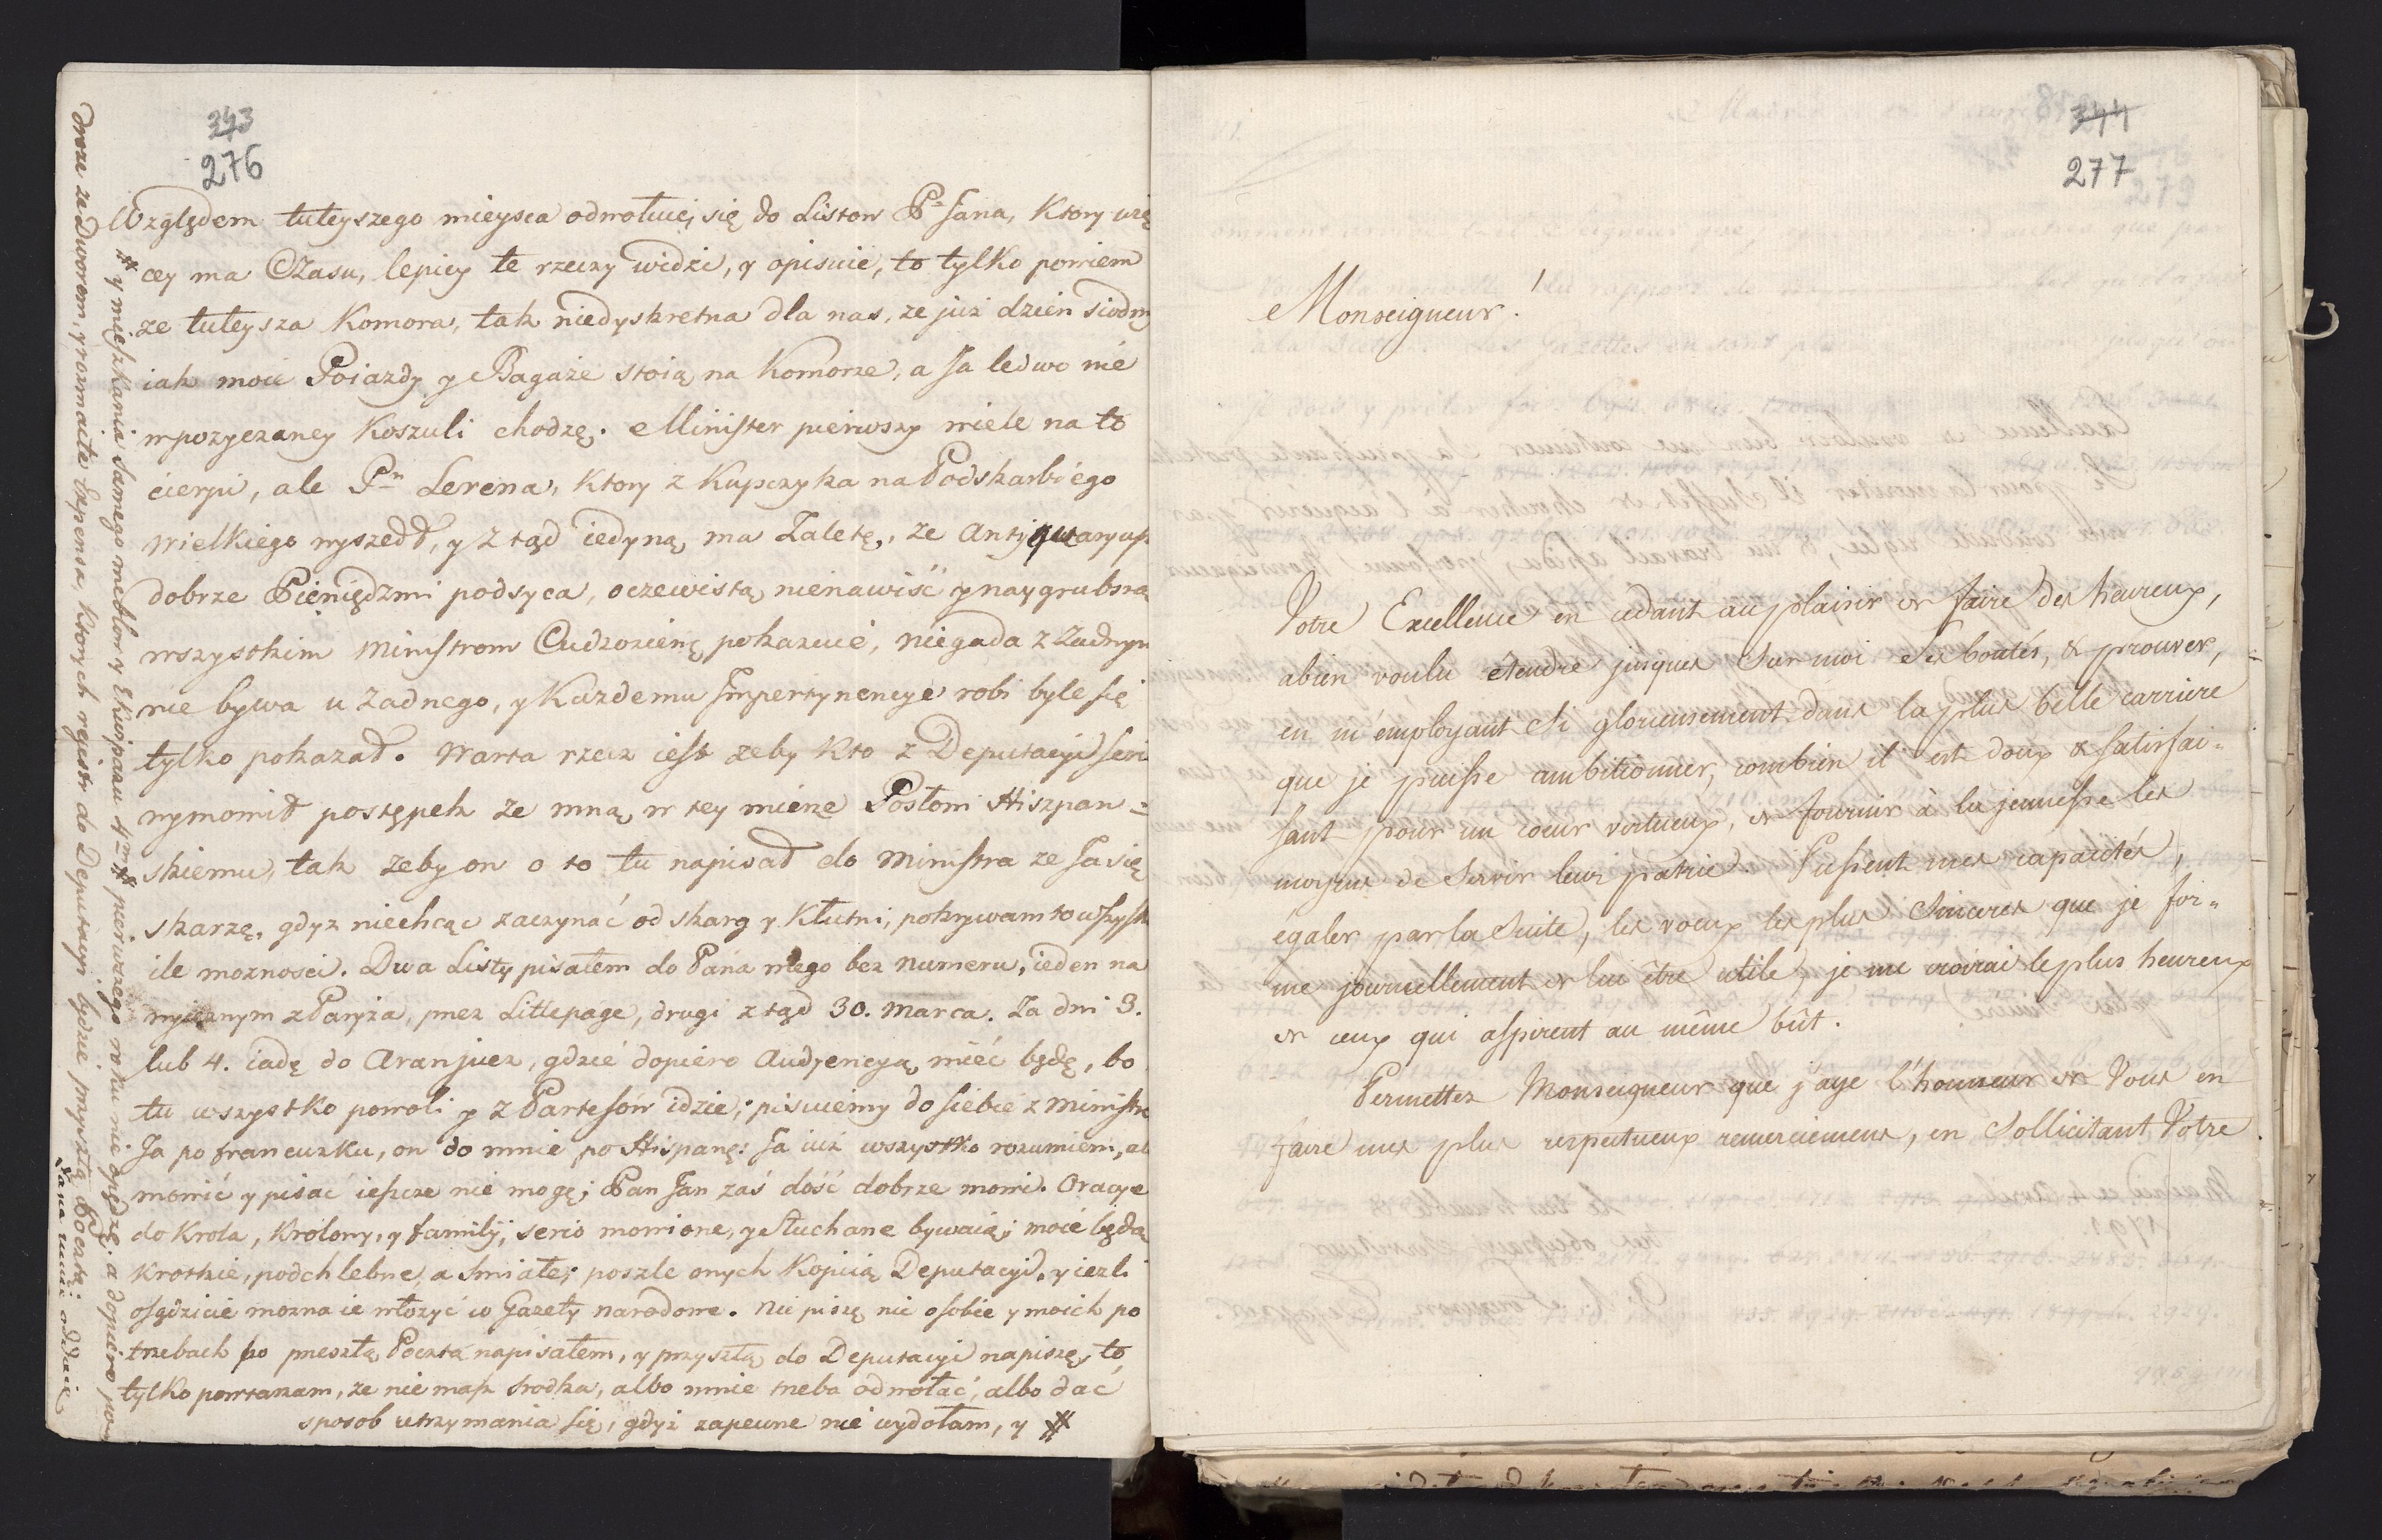 343
276
Względem tuteyszego mieysca odwołuię się do Listow P.ª Jana, Ktory wię
cey ma Czasu, lepiey te rzeczy widzi, y opisuie, to tylko powiem
ze tuteysza Komora, tak niedyskretna dla nas, ze już dzien siodmy
iak moie Poiazdy y Bagaże stoią na Komorze, a Ja ledwo nie
w pozyczaney Koszuli chodzę. Minister pierwszy wiele na to
cierpi, ale Pⁿ Lerena, Ktory z Kupczyka na Podskarbiego
wielkiego wyszedł, y z tąd iedyną ma Zaletę, ze
dobrze Pieniędzmi podsyca, oczewistą nienawiść y naygrubszą
wszystkim Ministrom Cudzoziemę pokazuie, niegada z Zadnym
nie bywa u Zadnego, y Kazdemu Jmpertynencye robi byle się
tylko pokazał. Warta rzecz iest zeby Kto z Deputacyi serio
wymowił postępek ze mną w tey mierze Posłowi Hiszpan=
skiemu, tak zeby on o to tu napisał do Ministra ze Ja się
skarzę, gdyz niechcąc zaczynać od skarg y Kłutni, pokrywam to wszystk
ile moznosci. Dwa Listy pisałem do Pana mego bez numeru, ieden na
z Paryża, przez Littepage, drugi z tąd 30. Marca. Za dni 3.
lub 4. iadę do Aranjuez, gdzie dopiero Audyencyą mieć będę, bo
tu wszystko powoli y z Partesow idzie; pisuiemy do siebie z Ministre
Ja po francuzku, on do mnie po Hispanę: Ja iuż wszystko rozumiem, al
mowić y pisać ieszcze nie mogę; Pan Jan zaś dość dobrze mowi. Oracye
do Krola, Krolowy, y familÿ, serio mowione, y słuchane bywaią; moie będą
Krotkie, podchlebne, a smiałe; poszle onych Kopią Deputacyi, y iezli
osądzicie mozna ie włozyć w Gazety narodowe. Nie piszę nic o sobie y moich po
trzebach bo przeszłą Pocztą napisałem, y przyszłą do Deputacyi napiszę, to
tylko powtarzam, ze nie masz srodka, albo mnie trzeba odwołać, albo dać
sposob utrzymania się, gdyż zapewne nie wydołam, y #
# y mięszkania Samego meblow y Ekwipazu pierwszego roku nie opędzę, a dopiero
droze ze Dworem, y rozmaite Expensa, Ktorych reiestr do Deputacyi będzie przyszłą Pocztą
344
277
Monseigneur!
Votre Excellence en cedant au plaisir de faire des heureux,
a bien voulu étendre jusques sur moi ses bontés, & prouver,
en m'employant si glorieusement dans la plus belle carriere
que je puisse ambitionner, combien il est doux & satisfai=
sant pour un coeur vertueux, de fournir à la jeunesse les
moyens de servir leur patrie. Pussent mes capacités,
egaler par la suite, les voeux les plus sinceres que je for=
me journellement de lui être utile, je me croirai le plus heureux
de ceux qui aspirent au même bût.
Permettez Monseigneur que j'aye l'honneur de Vous en
faire mes plus respectueux remerciemens, en sollicitant Votre